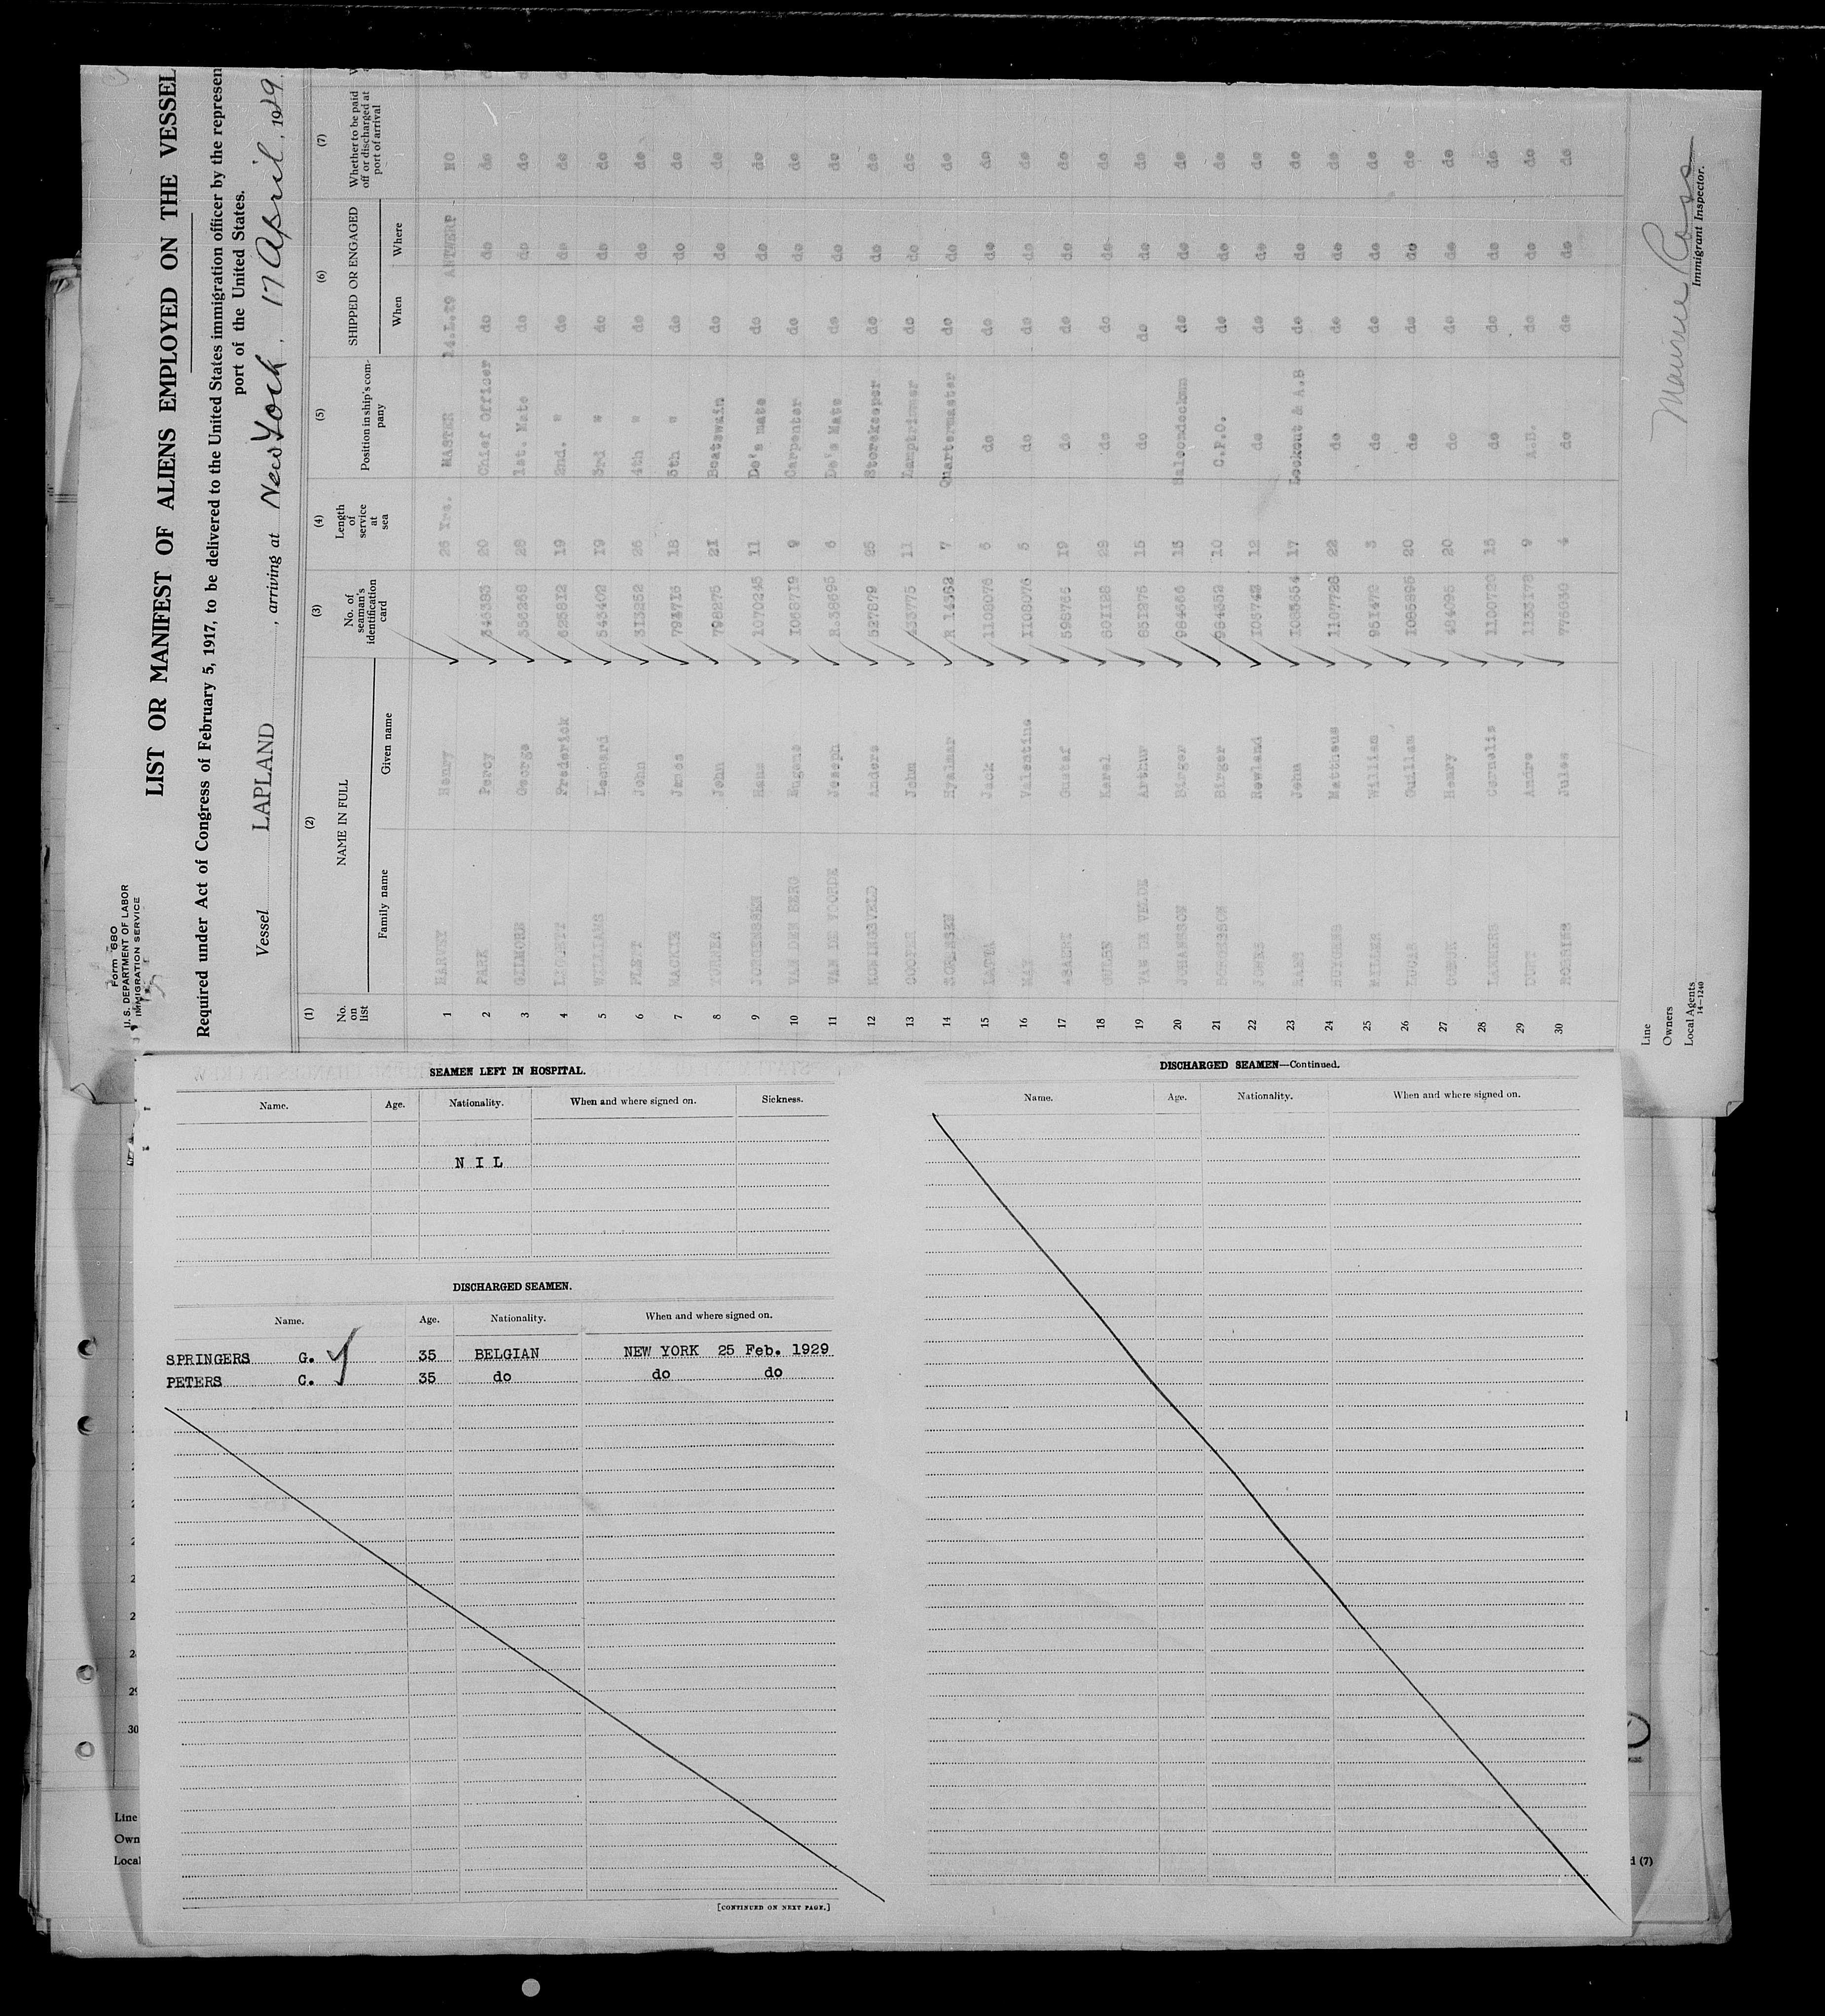 Form 680
U. S. DEPARTMENT OF LABOR
IMMIGRATION SERVICE
LIST OR MANIFEST OF ALIENS EMPLOYED ON THE VESSEL
Required under Act of Congress of February 5, 1917, to be delivered to the United States immigration officer by the represen
port of the United States.
Vessel LAPLAND, arriving at New York, 17 April, 1929.
(1) (2) (3) (4) (5) (6) (7)
No. on list NAME IN FULL No. of seaman's identification card Length of service at sea Position in ship's company SHIPPED OR ENGAGED Whether to be paid off or discharged at port of arrival
Family name Given name When Where
1 HARVEY Henry 26 Yrs. MASTER ANTWERP NO
2 PARK Percy 20 Chief Officer do do do
3 GILMORE George 28 1st. Mate do do do
4 Frederick 625812 19 2nd. " do do do
5 WILLIAMS Leonard 543402 19 3rd " do do do
6 FLET John 313252 4th " do do do
7 MACKIE James 18 5th " do do do
8 TURNER John 798275 21 Boatswain do do do
9 JORGENSSEN Hans 1070245 11 Do's mate do do do
10 VAN DEN BERG Eugene 1068719 9 Carpenter do do do
11 VAN DE VOORDE Joseph R.38695 6 Do's Mate do do do
12 KONINGSVELD Anders 527879 25 Storekeeper do do do
13 COOPER John 11 Lamptrimmer do do do
14 SORENSEN Hyalmar R.14362 7 Quartermaster do do do
15 LATTA Jack 1108076 do do do do
16 MAY Valentine 1108076 5 do do do do
17 Gustaf 598766 19 do do do do
18 Karel 801128 29 do do do do
19 VAN DE VELDE Arthur 851275 15 do do do do
20 JOHANSSON Birger Saloondeckmn do do do
21 Birger 984352 10 C.P.O. do do do
22 JONES Rowland 12 do do do do
23 RAES John 1085654 17 Lookout & A.B do do do
24 HUYGENS Mattheus 1107728 22 do do do do
25 William 3 do do do do
26 LUCAS Guillam 1085895 20 do do do do
27 Henry 484095 20 do do do do
28 Cornelis 1100720 15 do do do do
29 Andre 1133178 9 A.B. do do do
30 Jules 4 do do do do
Line
Owners
Local Agents
14—1240
Immigrant Inspector.
SEAMEN LEFT IN HOSPITAL.
Name. Age. Nationality. When and where signed on. Sickness.
N I L
DISCHARGED SEAMEN.
Name. Age. Nationality. When and where signed on.
SPRINGERS G. 35 BELGIAN NEW YORK 25 Feb. 1929
PETERS C. 35 do do do
[CONTINUED ON NEXT PAGE.]
DISCHARGED SEAMEN—Continued.
Name. Age. Nationality. When and where signed on.
29
30
Line
Own
Local
d (7)